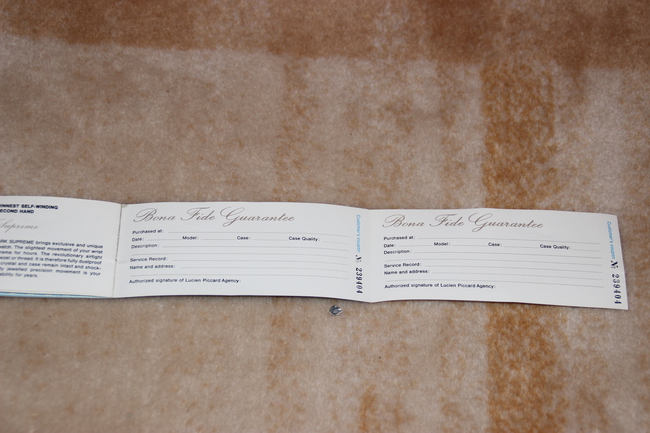 INNEST SELF-WINDING
ECOND HAND
Supreme
RK SUPREME brings exclusive and unique
watch. The slightest movement of your wrist
time for hours. The revolutionary airtight
essel or thread. It is therefore fully dustproof
crystal and case remain intact and shock-
ly jewelled precision movement is your
ability for years.
Bona Fide Guarantee
Purchased at:
Date: Model: Case: Case Quality:
Description:
Service Record:
Name and address:
Authorized signature of Lucien Piccard Agency:
Customer's coupon
No 239404
Bona Fide Guarantee
Purchased at:
Date: Model: Case: Case Quality:
Description:
Service Record:
Name and address:
Authorized signature of Lucien Piccard Agency:
No 239404